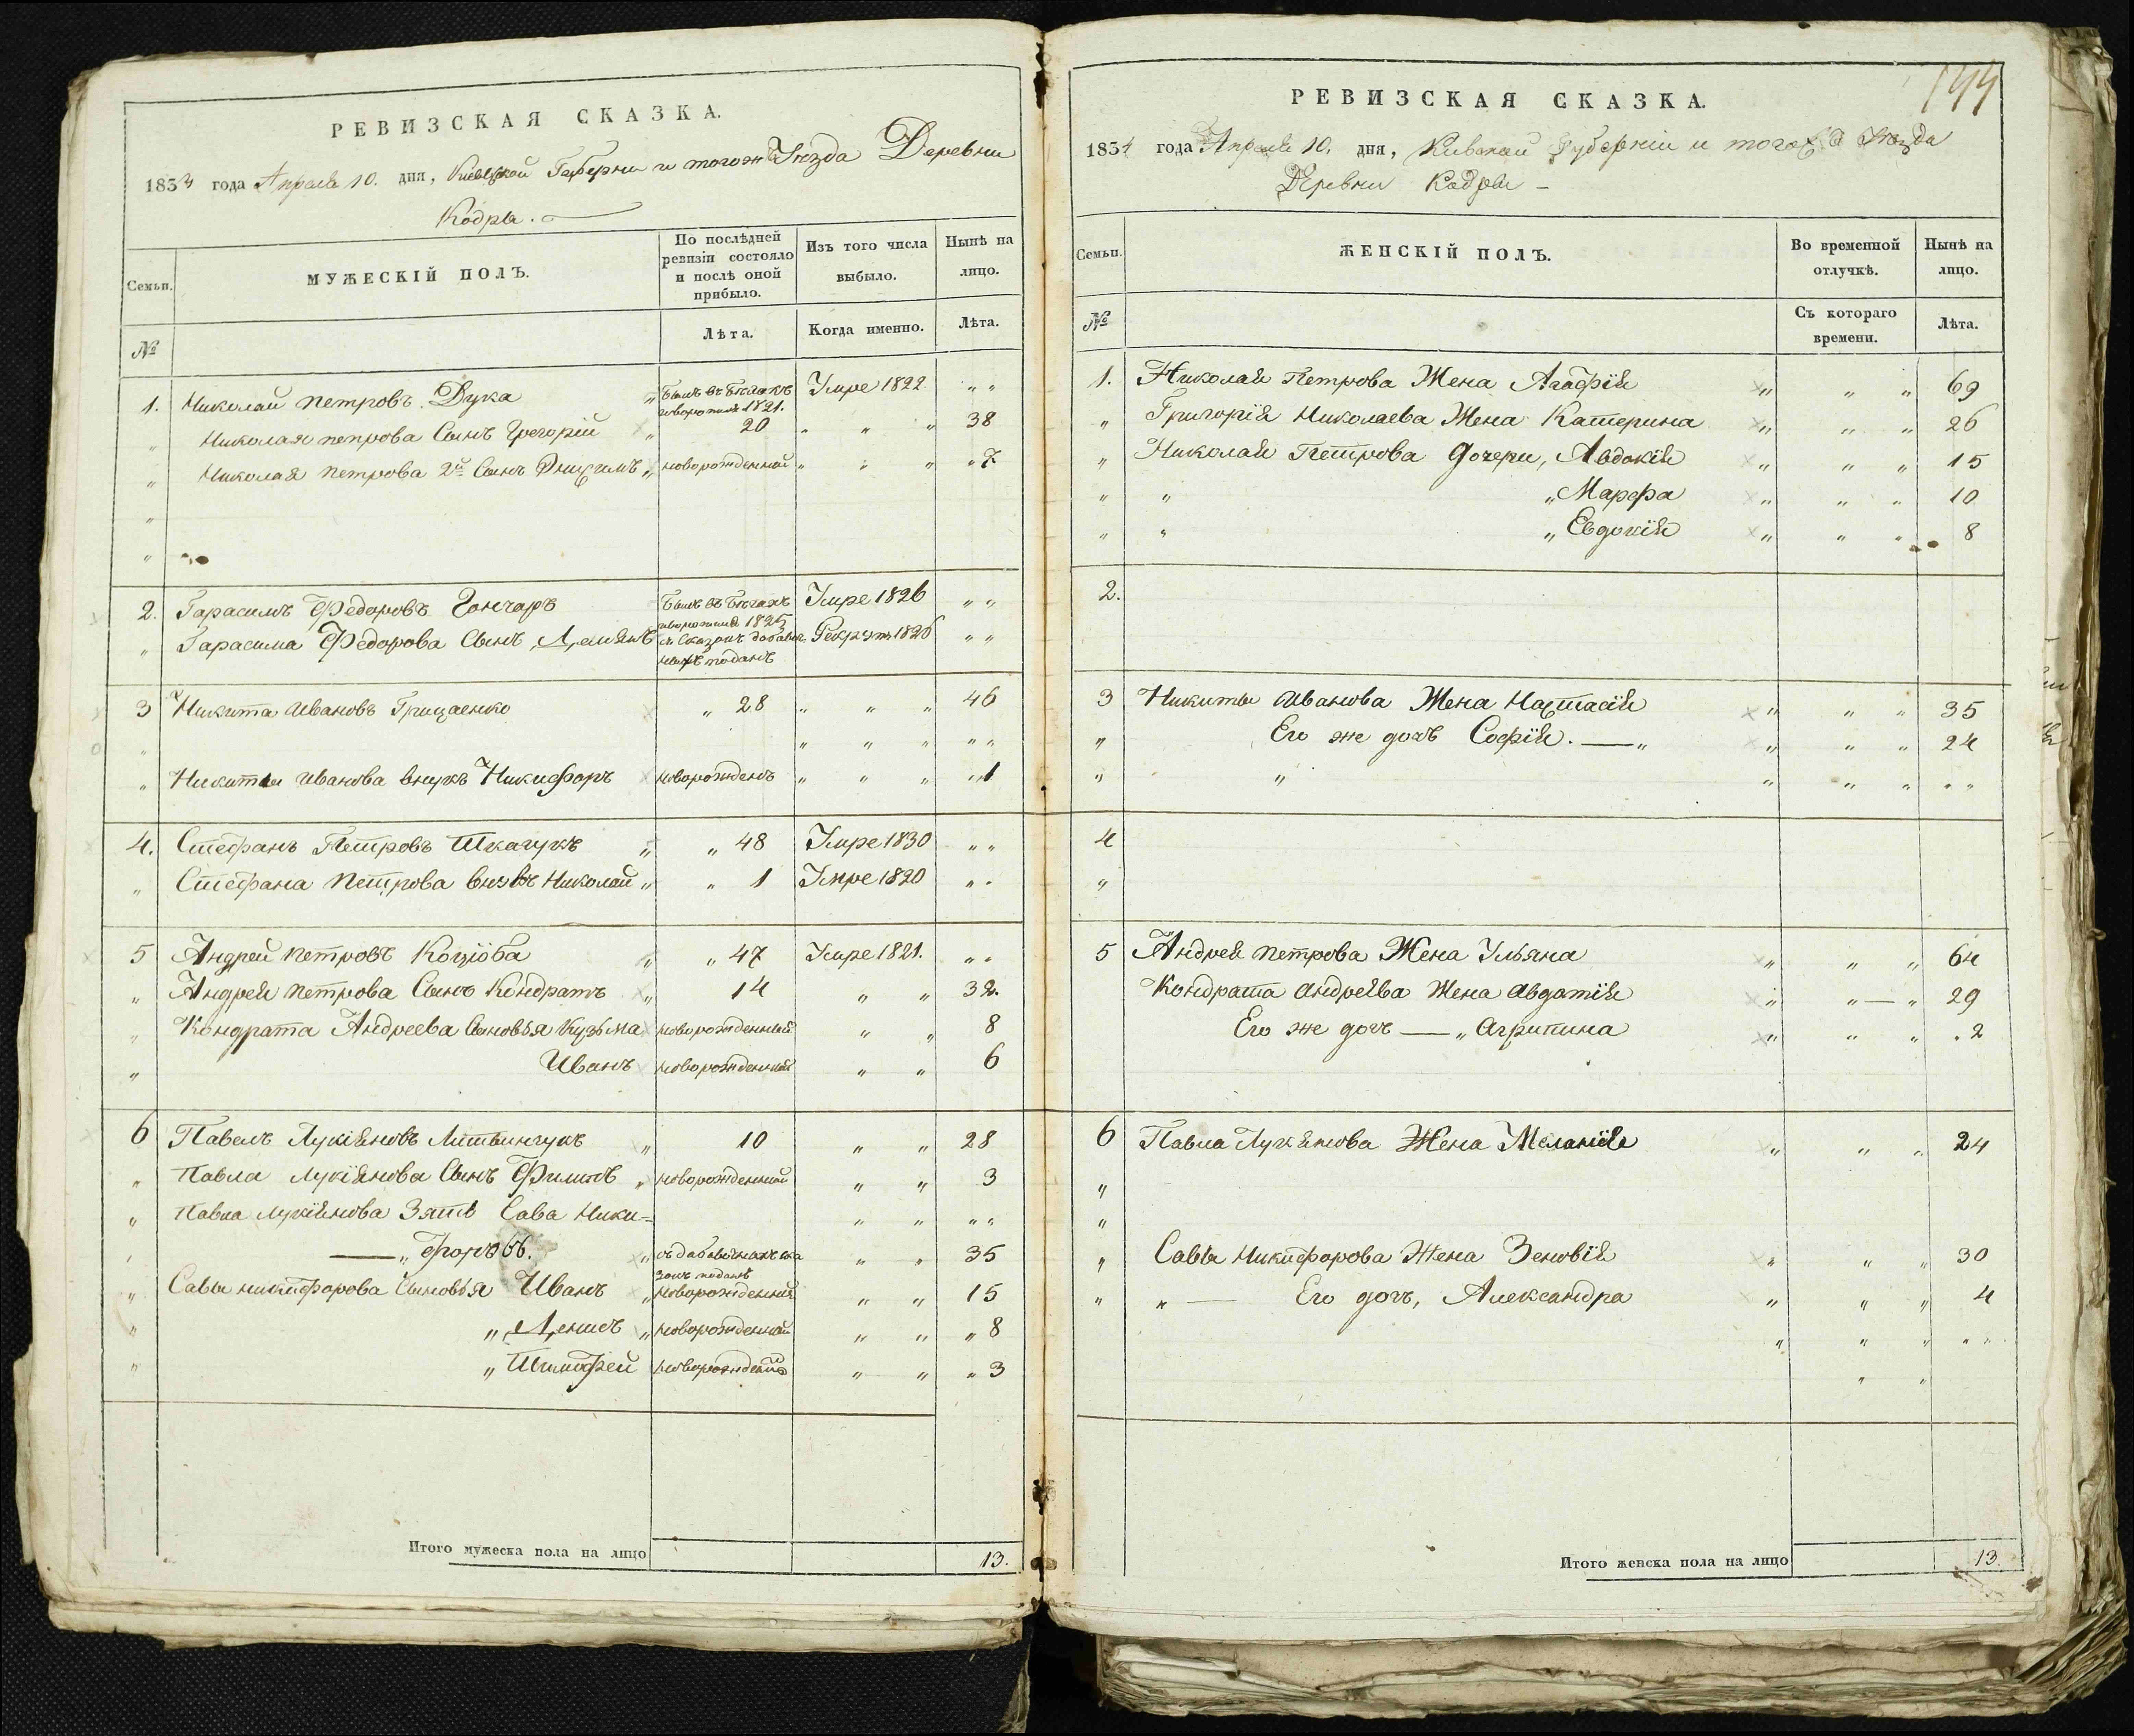 РЕВИЗСКАЯ СКАЗКА.
1834 года Апреля 10. дня, Киевской Губерніи и тогожъ Уезда Деревни
Кодры.
Семьи.
МУЖЕСКІЙ ПОЛЪ.
По послѣдней ревизіи состояло и послѣ оной прибыло.
Изъ того числа выбыло.
Нынѣ на лицо.
№
Лѣта.
Когда именно.
Лѣта.
1. Николай Петровъ Дука " Былъ въ Бегахъ Умре 1822. " "
1821.
" Николая петрова Сынъ Грегорій " 20 " " " 38
" Николая Петрова 2й Сынъ " новорожденной " " " " 7
"
"
2. Гарасимъ Федоровъ Гончаръ Былъ въ Бегахъ Умре 1826 " "
1825
" Гарасима Федорова Сынъ Демянъ Рекрутъ 1826 " "
поданъ
3 Никита Ивановъ Грищенко " 28 " " " 46
" " " " " "
" Никиты Иванова внукъ Никифоръ новорожденъ " " " " 1
4. Стефанъ Петровъ Ткачукъ " " 48 Умре 1830 " "
" Стефана Петрова внукъ Николай " " 1 Умре 1820 " "
5 Андрей Петровъ Коцюба " " 47 Умре 1821. " "
" Андрея Петрова Сынъ Кондратъ " 14 " " 32.
" Кондрата Андреева Сыновья Кузьма новорожденный " " 8
" Иванъ новорожденный " " 6
6 Павелъ Лукіяновъ Литвинчукъ " 10 " " 28
" Павла Лукіянова Сынъ Филипъ " новорожденной " " 3
" Павла Лукіянова Зять Сава Ники= " " " "
" — " форовъ. " " " 35
" Савы Никифорова Сыновья Иванъ " новорожденный " " 15
" " Денисъ " новорожденной " " " 8
" " Тимофей новорожденъ " " " 3
Итого мужеска пола на лицо 13.
144
РЕВИЗСКАЯ СКАЗКА.
1834 года Апреля 10. дня, Киевской Губерніи и тогожъ Уезда
Деревни Кодры —
Семьи.
ЖЕНСКІЙ ПОЛЪ.
Во временной отлучкѣ.
Нынѣ на лицо.
№
Съ котораго времени.
Лѣта.
1. Николая Петрова Жена Агафія " " " 69
" Григорія Николаева Жена Катерина " " " 26
" Николая Петрова Дочери, Авдокія " " " 15
" " " Марфа " " " 10
" " " Евдокія " " " 8
2.
3 Никиты Иванова Жена Настасія " " " 35
" Его же дочь Софія. — " " " " 24
" " " " " " "
4
"
5 Андрея Петрова Жена Ульяна " " " 64
Кондрата Андреева Жена Авдотія " " — " 29
Его же дочь — " Агрипина " " " " 2
6 Павла Лукянова Жена Меланія " " " 24
"
"
" Савы Никифорова Жена Зеновія " " " 30
" " — Его дочь, Александра " " " 4
" " " " " "
" "
Итого женска пола на лицо 13.